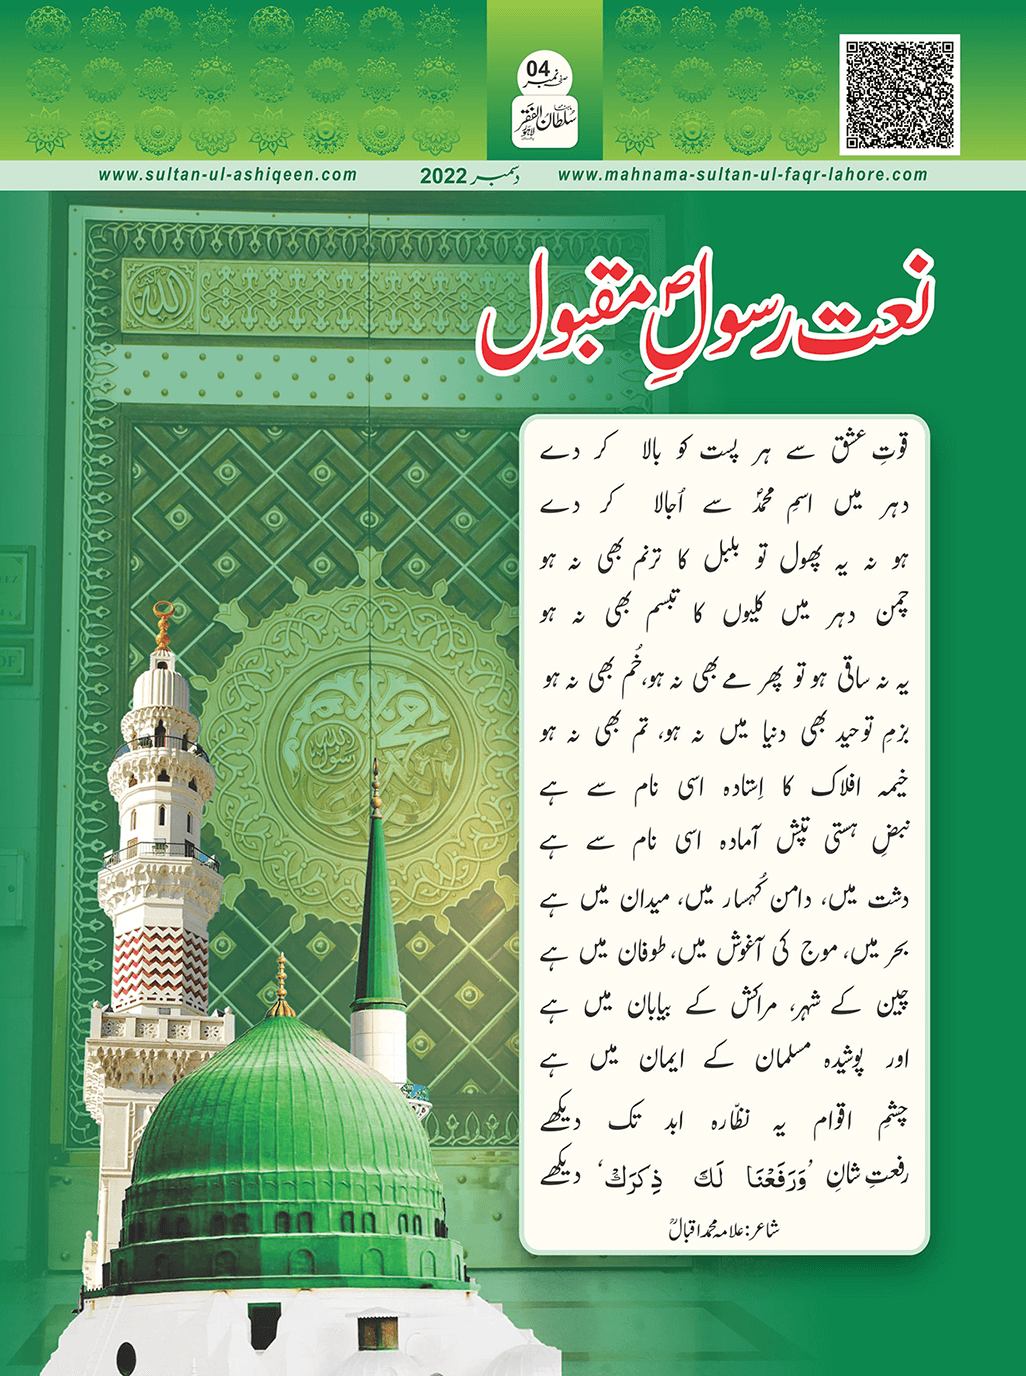 04
صفحہ نمبر
ماہنامہ
سُلطان الفقر
لاہور
www.sultan-ul-ashiqeen.com دسمبر 2022 www.mahnama-sultan-ul-faqr-lahore.com
نعت رسولِ مقبولؐ
قوتِ عشق سے ہر پست کو بالا کر دے
دہر میں اسمِ محمدؐ سے اُجالا کر دے
ہو نہ یہ پھول تو بلبل کا ترنم بھی نہ ہو
چمن دہر میں کلیوں کا تبسم بھی نہ ہو
یہ نہ ساقی ہو تو پھر مے بھی نہ ہو، خُم بھی نہ ہو
بزمِ توحید بھی دنیا میں نہ ہو، تم بھی نہ ہو
خیمہ افلاک کا اِستادہ اسی نام سے ہے
نبضِ ہستی تپش آمادہ اسی نام سے ہے
دشت میں، دامن کُہسار میں، میدان میں ہے
بحر میں، موج کی آغوش میں، طوفان میں ہے
چین کے شہر، مراکش کے بیابان میں ہے
اور پوشیدہ مسلمان کے ایمان میں ہے
چشمِ اقوام یہ نظّارہ ابد تک دیکھے
رفعتِ شانِ ’وَرَفَعْنَا لَكَ ذِكرَكْ‘ دیکھے
شاعر: علامہ محمد اقبالؒ
الله
محمد
رسول الله